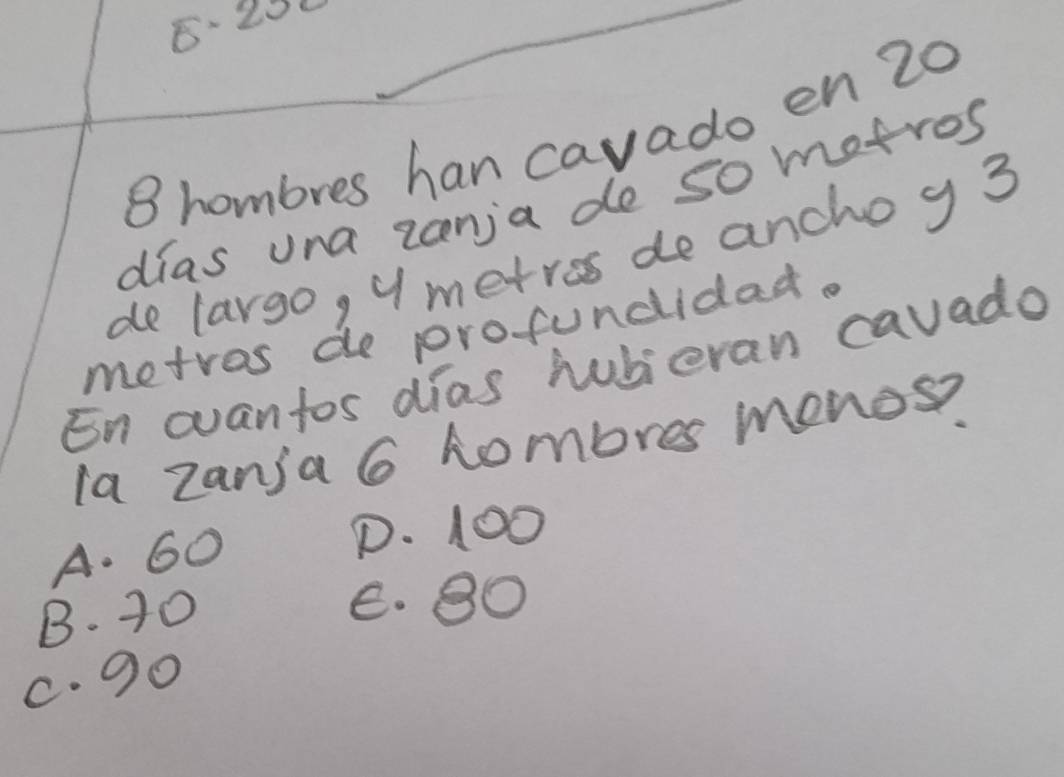 8 hombres han cavado en 20
días una zanja de 50 metros
de largo, 4 metros de ancho y 3
metros de profundidad.
En cuantos días hubieran cavado
la zanja 6 hombres menos?
A. 60 D. 100
B. 70 E. 80
C. 90